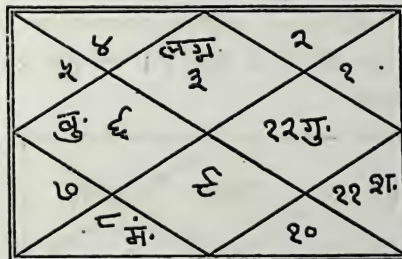 ४ लग्न २
५ ३ १
बु. ६ १२गु.
७ ९ ११श.
८ मं. १०